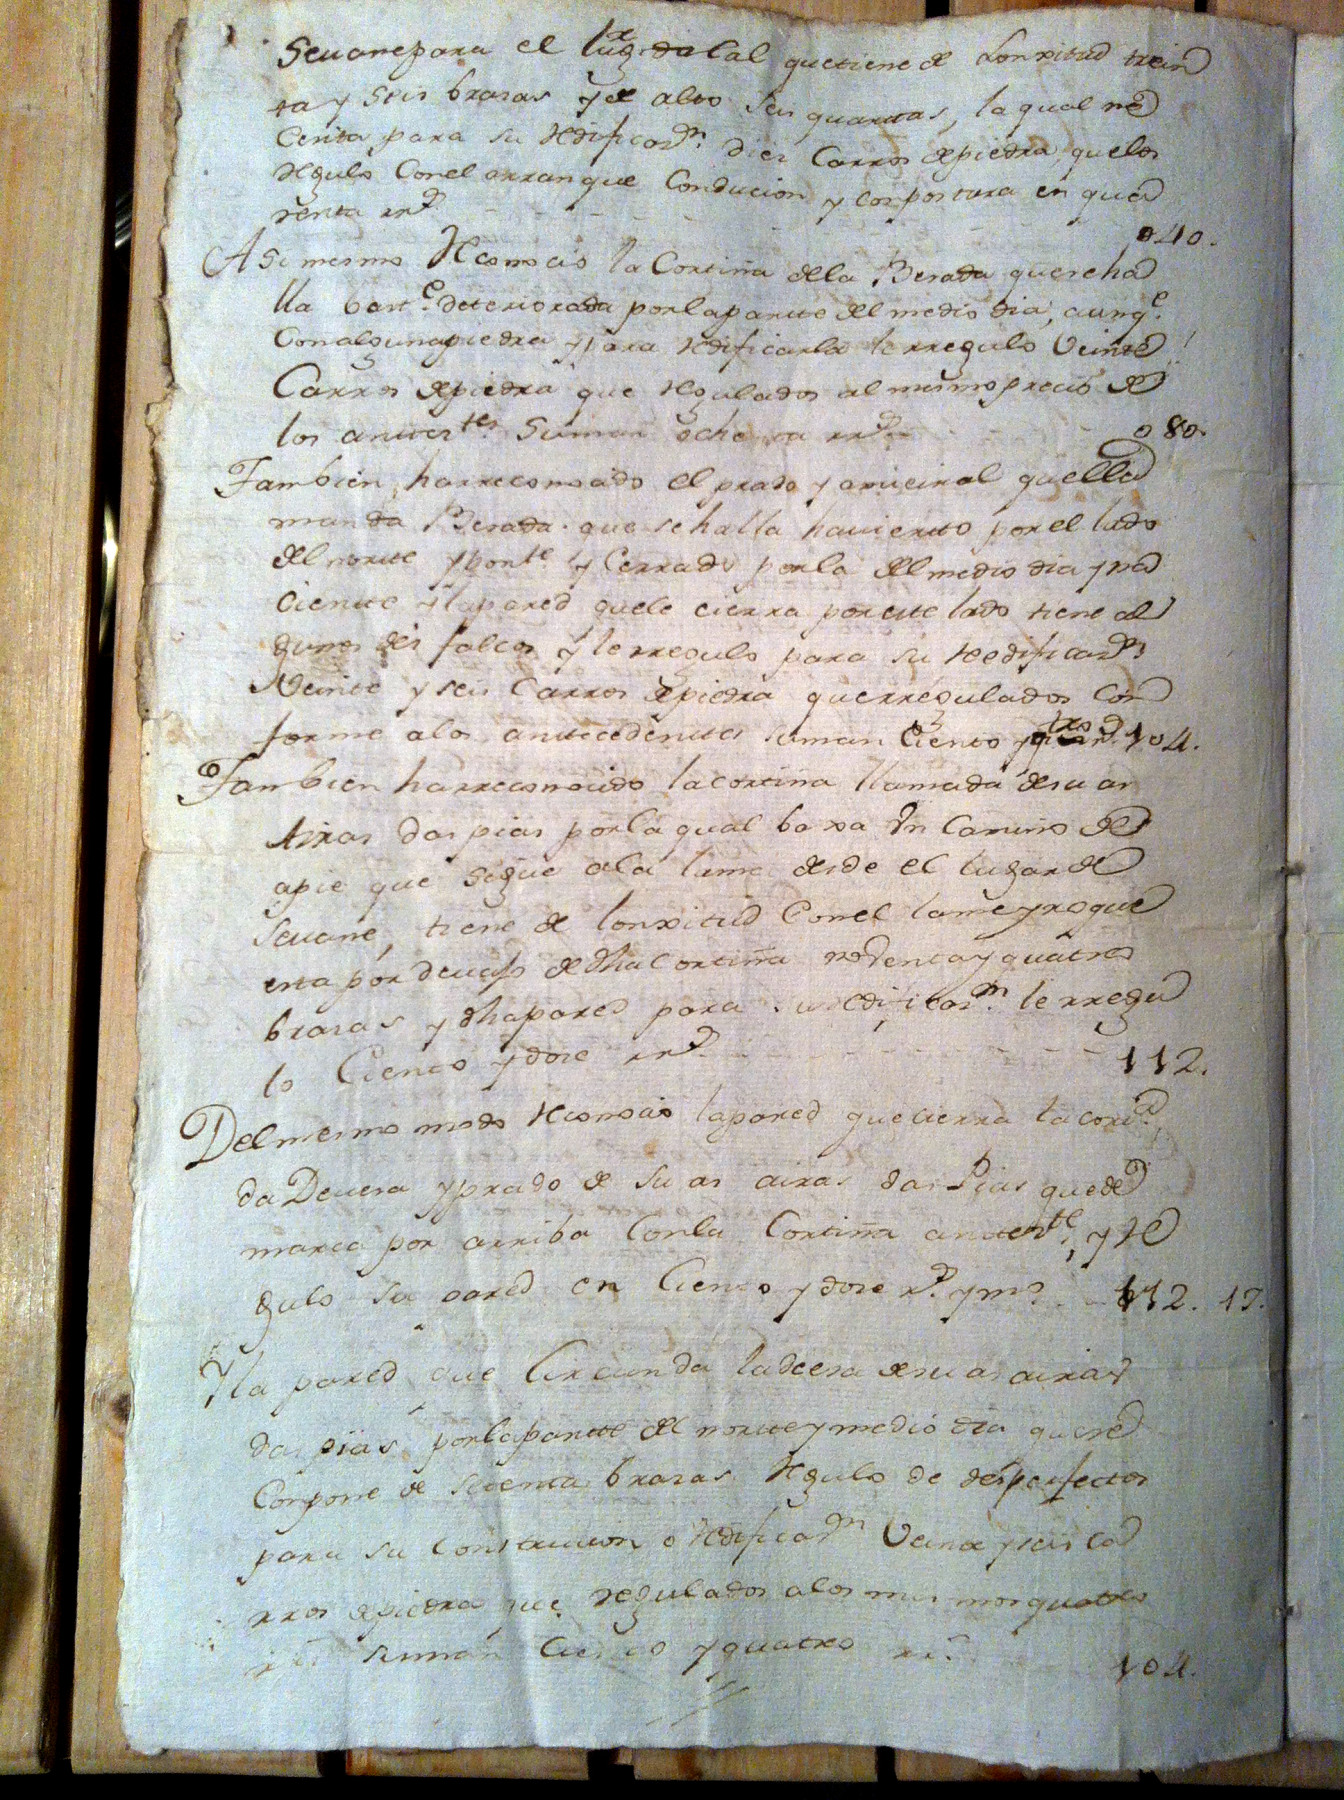 Seuane para el lugr da Cal que tiene de Lonxitud trein
ta y seis brazas y de alto seis quartas, la qual ne
cesita para su redificazn. diez Carros de piedra que los
reguló Con el arranque Conducion y Conpostura en qua
renta rrs. 040.
Asi mesmo Reconocio la Cortiña de la Besada que se ha
lla bastte. deteriorada por la parte del medio dia, aunqe.
Con alguna piedra y para redificarla le rreguló Veinte
Carros de piedra que regulados al mesmo precio de
los antertes. Suman ochenta rrs. 080.
Tambien ha rreconocido el prado y amieiral que lla
man da Besada que se halla havierto por el lado
del norte y ponte y Cerrado por la del medio dia y na
ciente y la pared que le cierra por este lado tiene al
gunos desfalcos y le rreguló para su reedificazn.
Veinte y seis Carros de piedra que rregulados Con
forme a los antecedentes suman Ciento y rrs. 104.
Tambien ha rreconocido la cortiña llamada de suas
Airas das pias por la qual baxa Un Camino de
a pie que sigue a la lama desde el lugar de
Seuane, tiene de lonxitud Con el lameyro que
esta por devajo de dha Cortiña nobenta y quatro
brazas y dha pared para su redificazn. le rregu
lo Ciento y doze rrs. 112.
Del mesmo modo reconocio la pared que cierra la corta.
da Devesa y prado de suas airas das Pias que de
marca por arriba Con la Cortiña anterte, y re
gulo su pared en Ciento y doze rs. y mo. 112. 17.
Y la pared que Circunda la deesa de suas airas
das pias por la parte del norte y medio dia que se
Conpone de setenta brazas reguló de desperfectos
para su Construcion o redificazn Veinte y seis ca
rros de piedra que regulados a los mismos quatro
rrs suman Ciento y quatro rrs. 104.